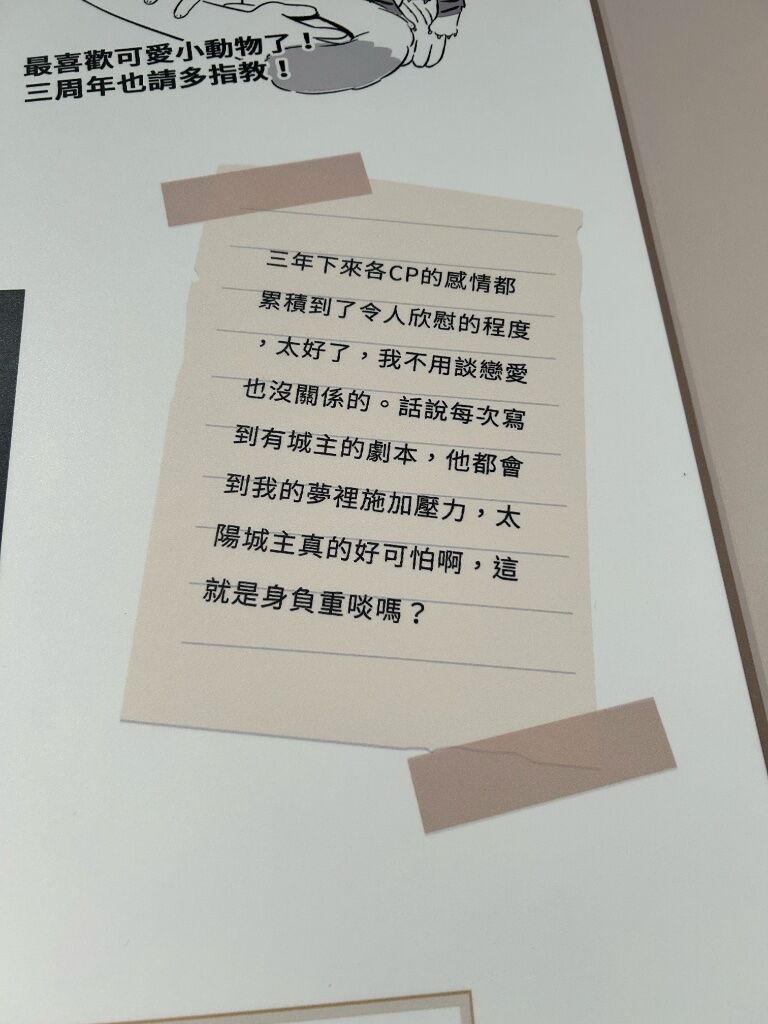 最喜歡可愛小動物了！
三周年也請多指教！
三年下來各CP的感情都
累積到了令人欣慰的程度
，太好了，我不用談戀愛
也沒關係的。話說每次寫
到有城主的劇本，他都會
到我的夢裡施加壓力，太
陽城主真的好可怕啊，這
就是身負重啖嗎？